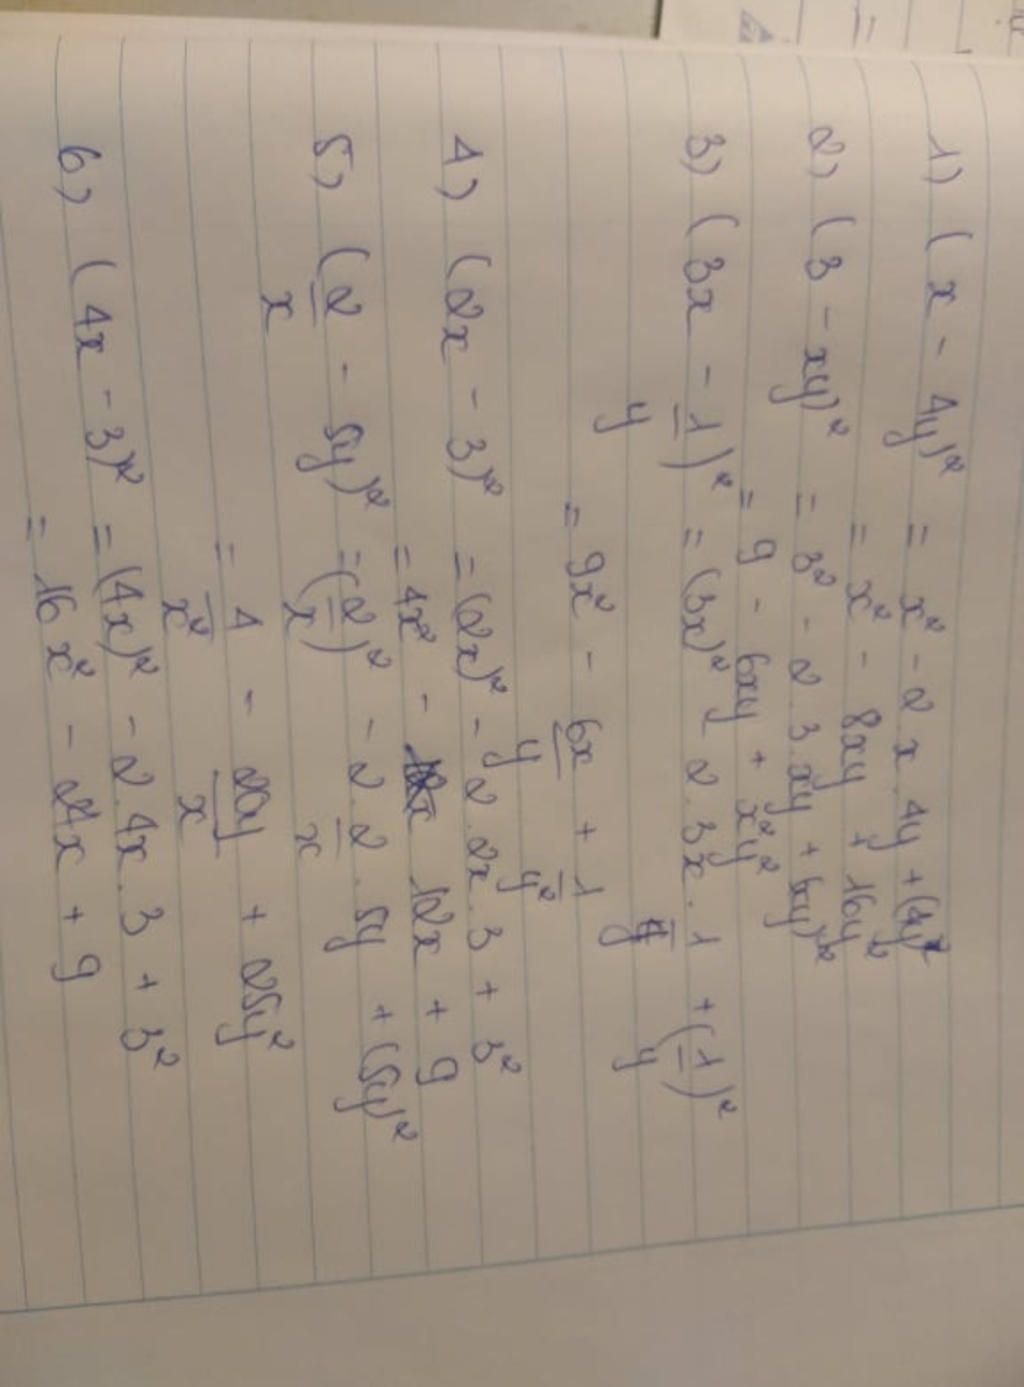 1) (x - 4y)² = x² - 2 x . 4y + (4y)²
= x² - 8xy + 16y²
2) (3 - xy)² = 3² - 2 . 3 . xy + (xy)²
= 9 - 6xy + x²y²
3) (3x - 1/y)² = (3x)² - 2 . 3x . 1/y + (1/y)²
= 9x² - 6x/y + 1/y²
4) (2x - 3)² = (2x)² - 2 . 2x . 3 + 3²
= 4x² - 12x + 9
5) (2/x - 5y)² = (2/x)² - 2 . 2/x . 5y + (5y)²
= 4/x² - 20y/x + 25y²
6) (4x - 3)² = (4x)² - 2 . 4x . 3 + 3²
= 16x² - 24x + 9